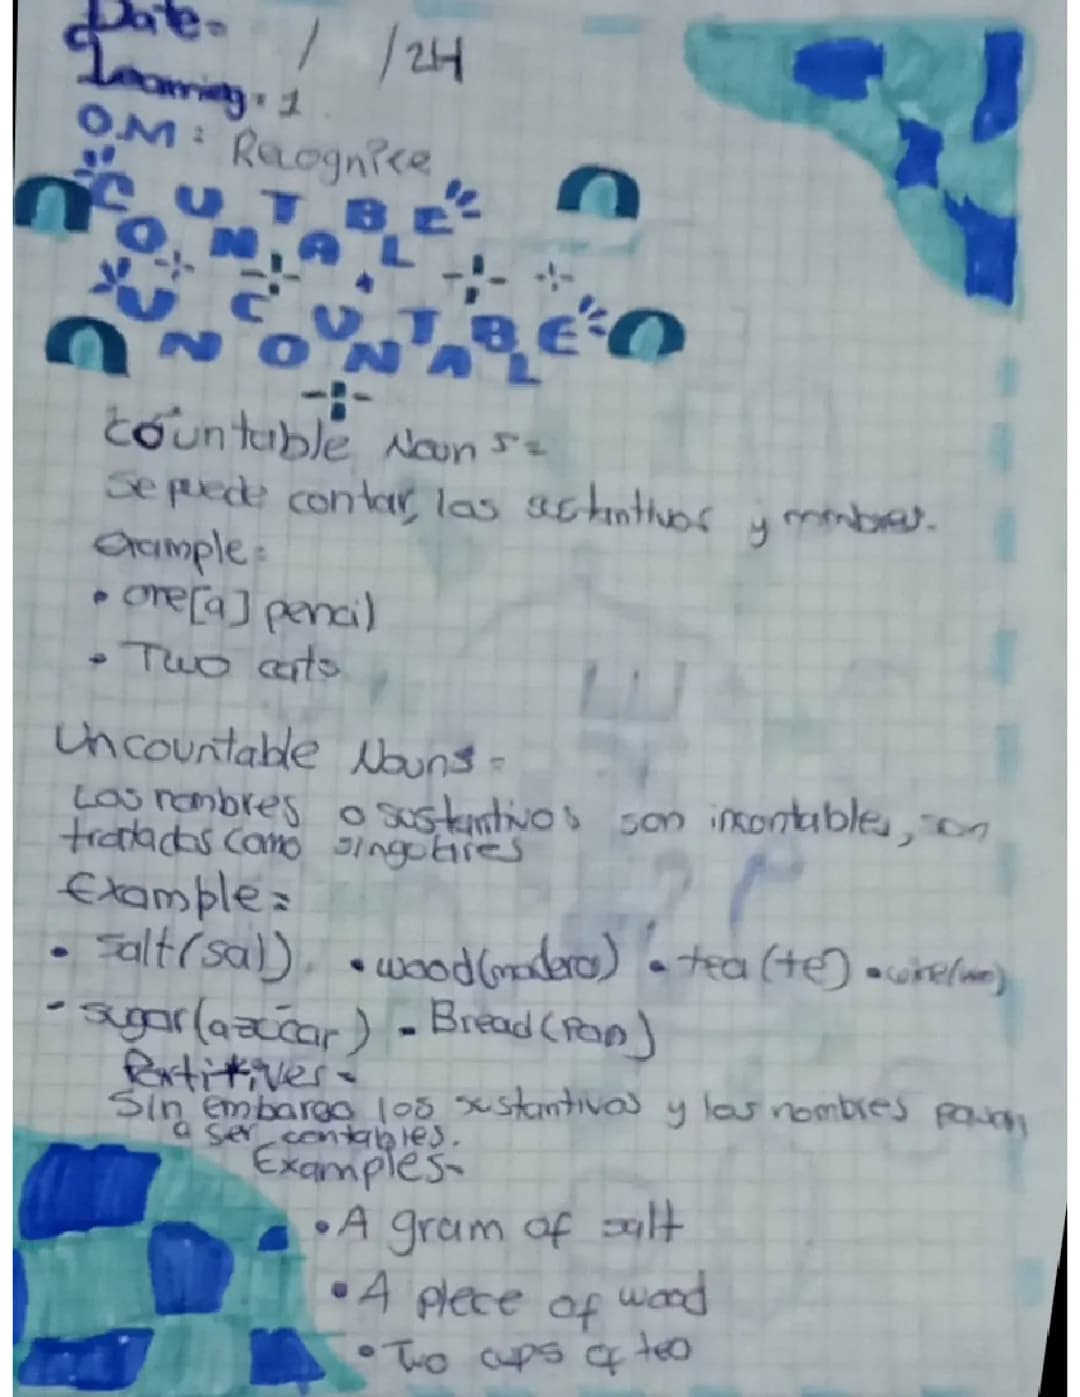 Date= / /24
Learning: 1
O.M: Recognice
COUNTABLE
UNCOUNTABLE
Countable Nouns=
Se puede contar, los sustantivos y nombres.
Example:
• one[a] pencil
• Two cats
Uncountable Nouns=
Los nombres o sustantivos son incontables, son
tratados como singulares
Example=
• salt(sal) • wood(madera) • tea(te) • wine(vino)
- sugar(azúcar) - Bread(Pan)
Partitives-
Sin embargo los sustantivos y los nombres pasan
a ser contables.
Examples-
• A gram of salt
• A piece of wood
• Two cups of tea